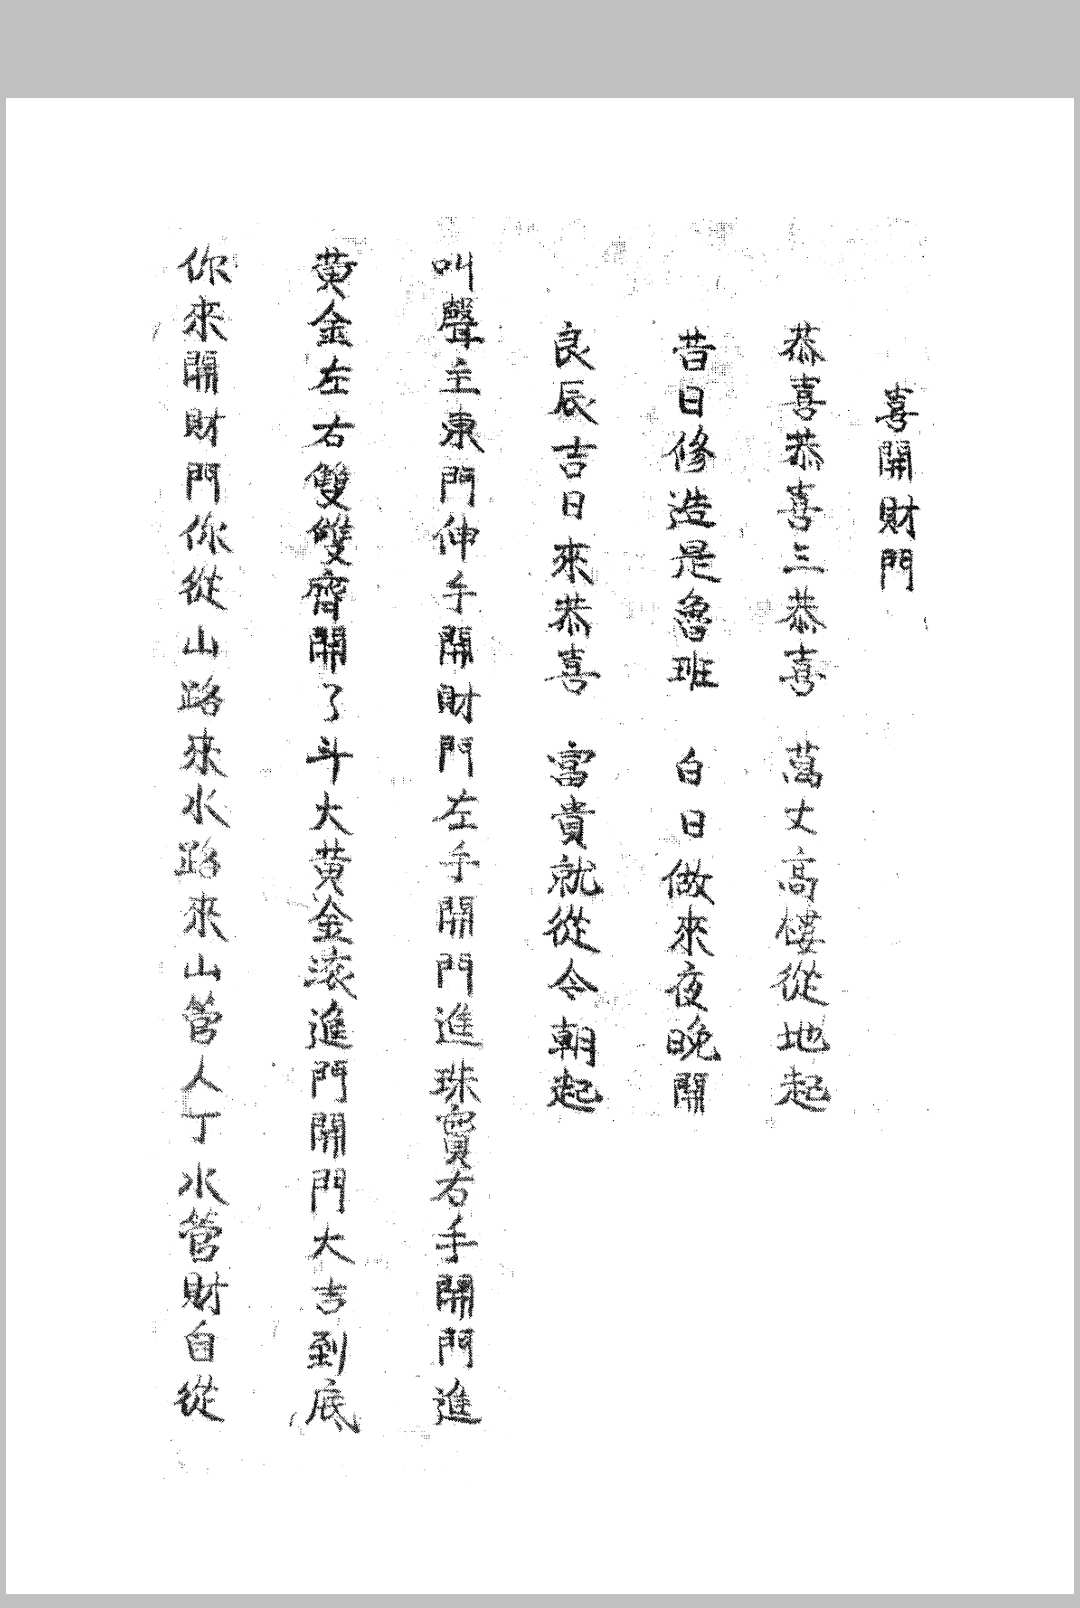 喜開財門
恭喜恭喜三恭喜　萬丈高樓從地起
昔日修造是魯班　白日做來夜晚開
良辰吉日來恭喜　富貴就從今朝起
叫聲主東門伸手開財門左手開門進珠寶右手開門進
黃金左右雙雙齊開了斗大黃金滾進門開門大吉到底
你來開財門你從山路來水路來山管人丁水管財自從